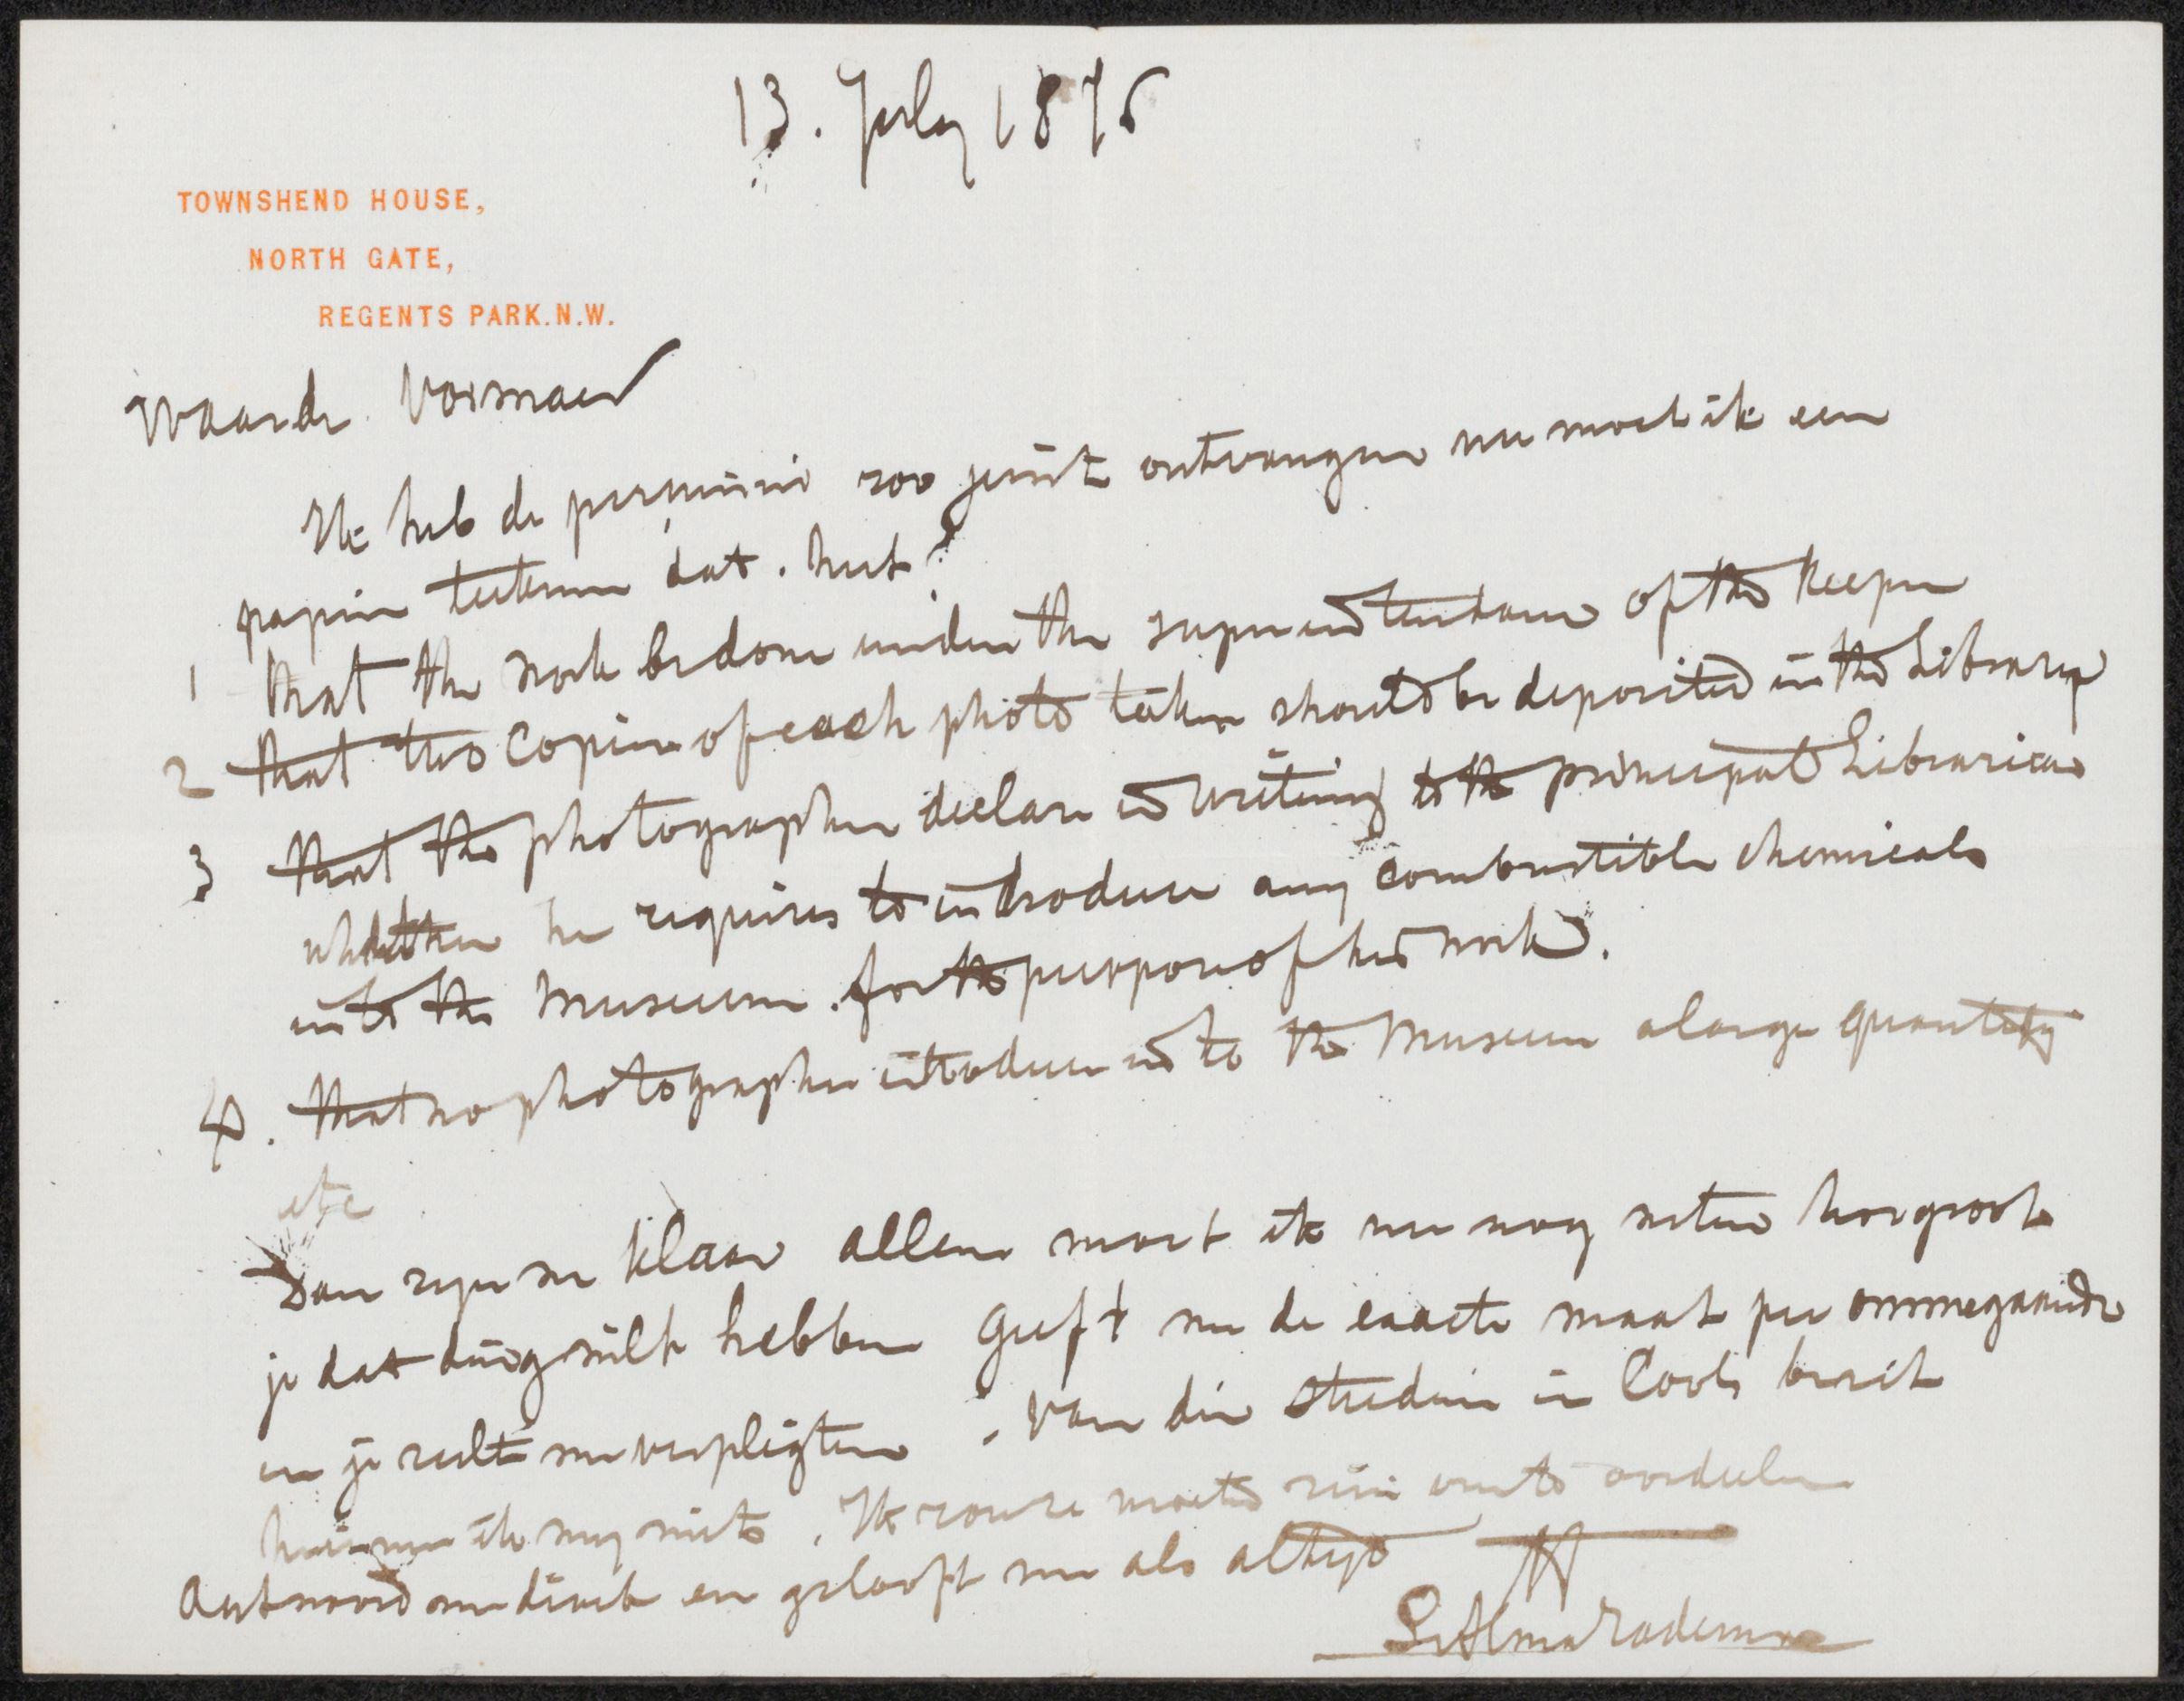 13. July 1876
TOWNSHEND HOUSE,
NORTH GATE,
REGENTS PARK. N.W.
Waarde Vosmaer
Ik heb de permissie zoo juist ontvangen nu moet ik een
papier teekenen dat. het
1 that the work be done under the superintendance of the keeper
2 that two copies of each photo taken should be deposited in the Library
3 that the photographer declare in writing to the principal Librarian
whether he requires to introduce any combustible chemicals
into the Museum. for the purpose of his work.
4. that no photographer introduce into the Museum a large quantity
etc
Dan zyn we klaar alleen moet ik nu nog weten hoe groot
je dat ding wilt hebben Geeft me de exacte maat per ommegaande
en je zult me verpligten. Van die studien in Cools bezit
herinner ik my niets. Ik zou ze moeten zien eer te oordeelen
Antwoord me direct en gelooft me als altyd
L Alma Tadema